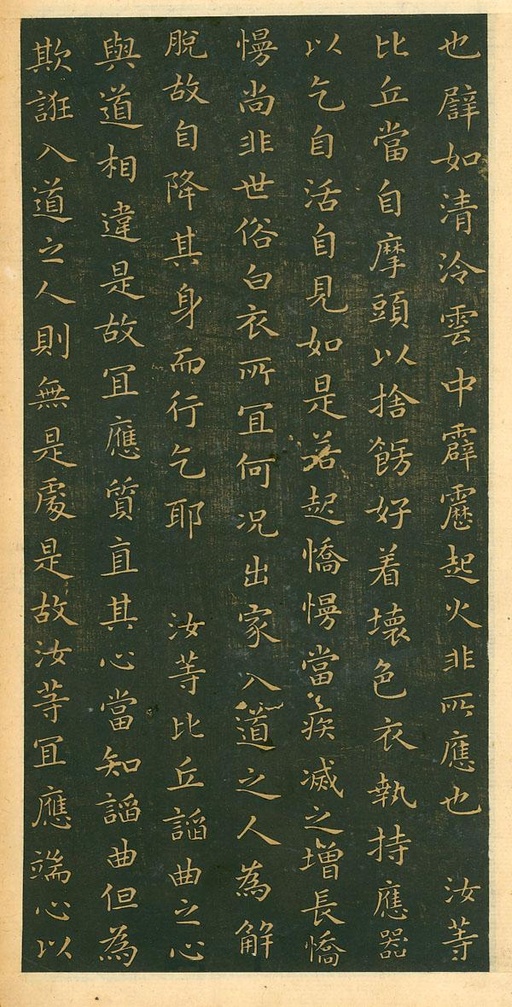 也譬如清泠雲中霹靂起火非所應也　汝等
比丘當自摩頭以捨餝好着壞色衣執持應器
以乞自活自見如是若起憍慢當疾滅之增長憍
慢尚非世俗白衣所冝何况出家入道之人為解
脫故自降其身而行乞耶　汝等比丘謟曲之心
與道相違是故冝應質直其心當知謟曲但為
欺誑入道之人則無是處是故汝等冝應端心以